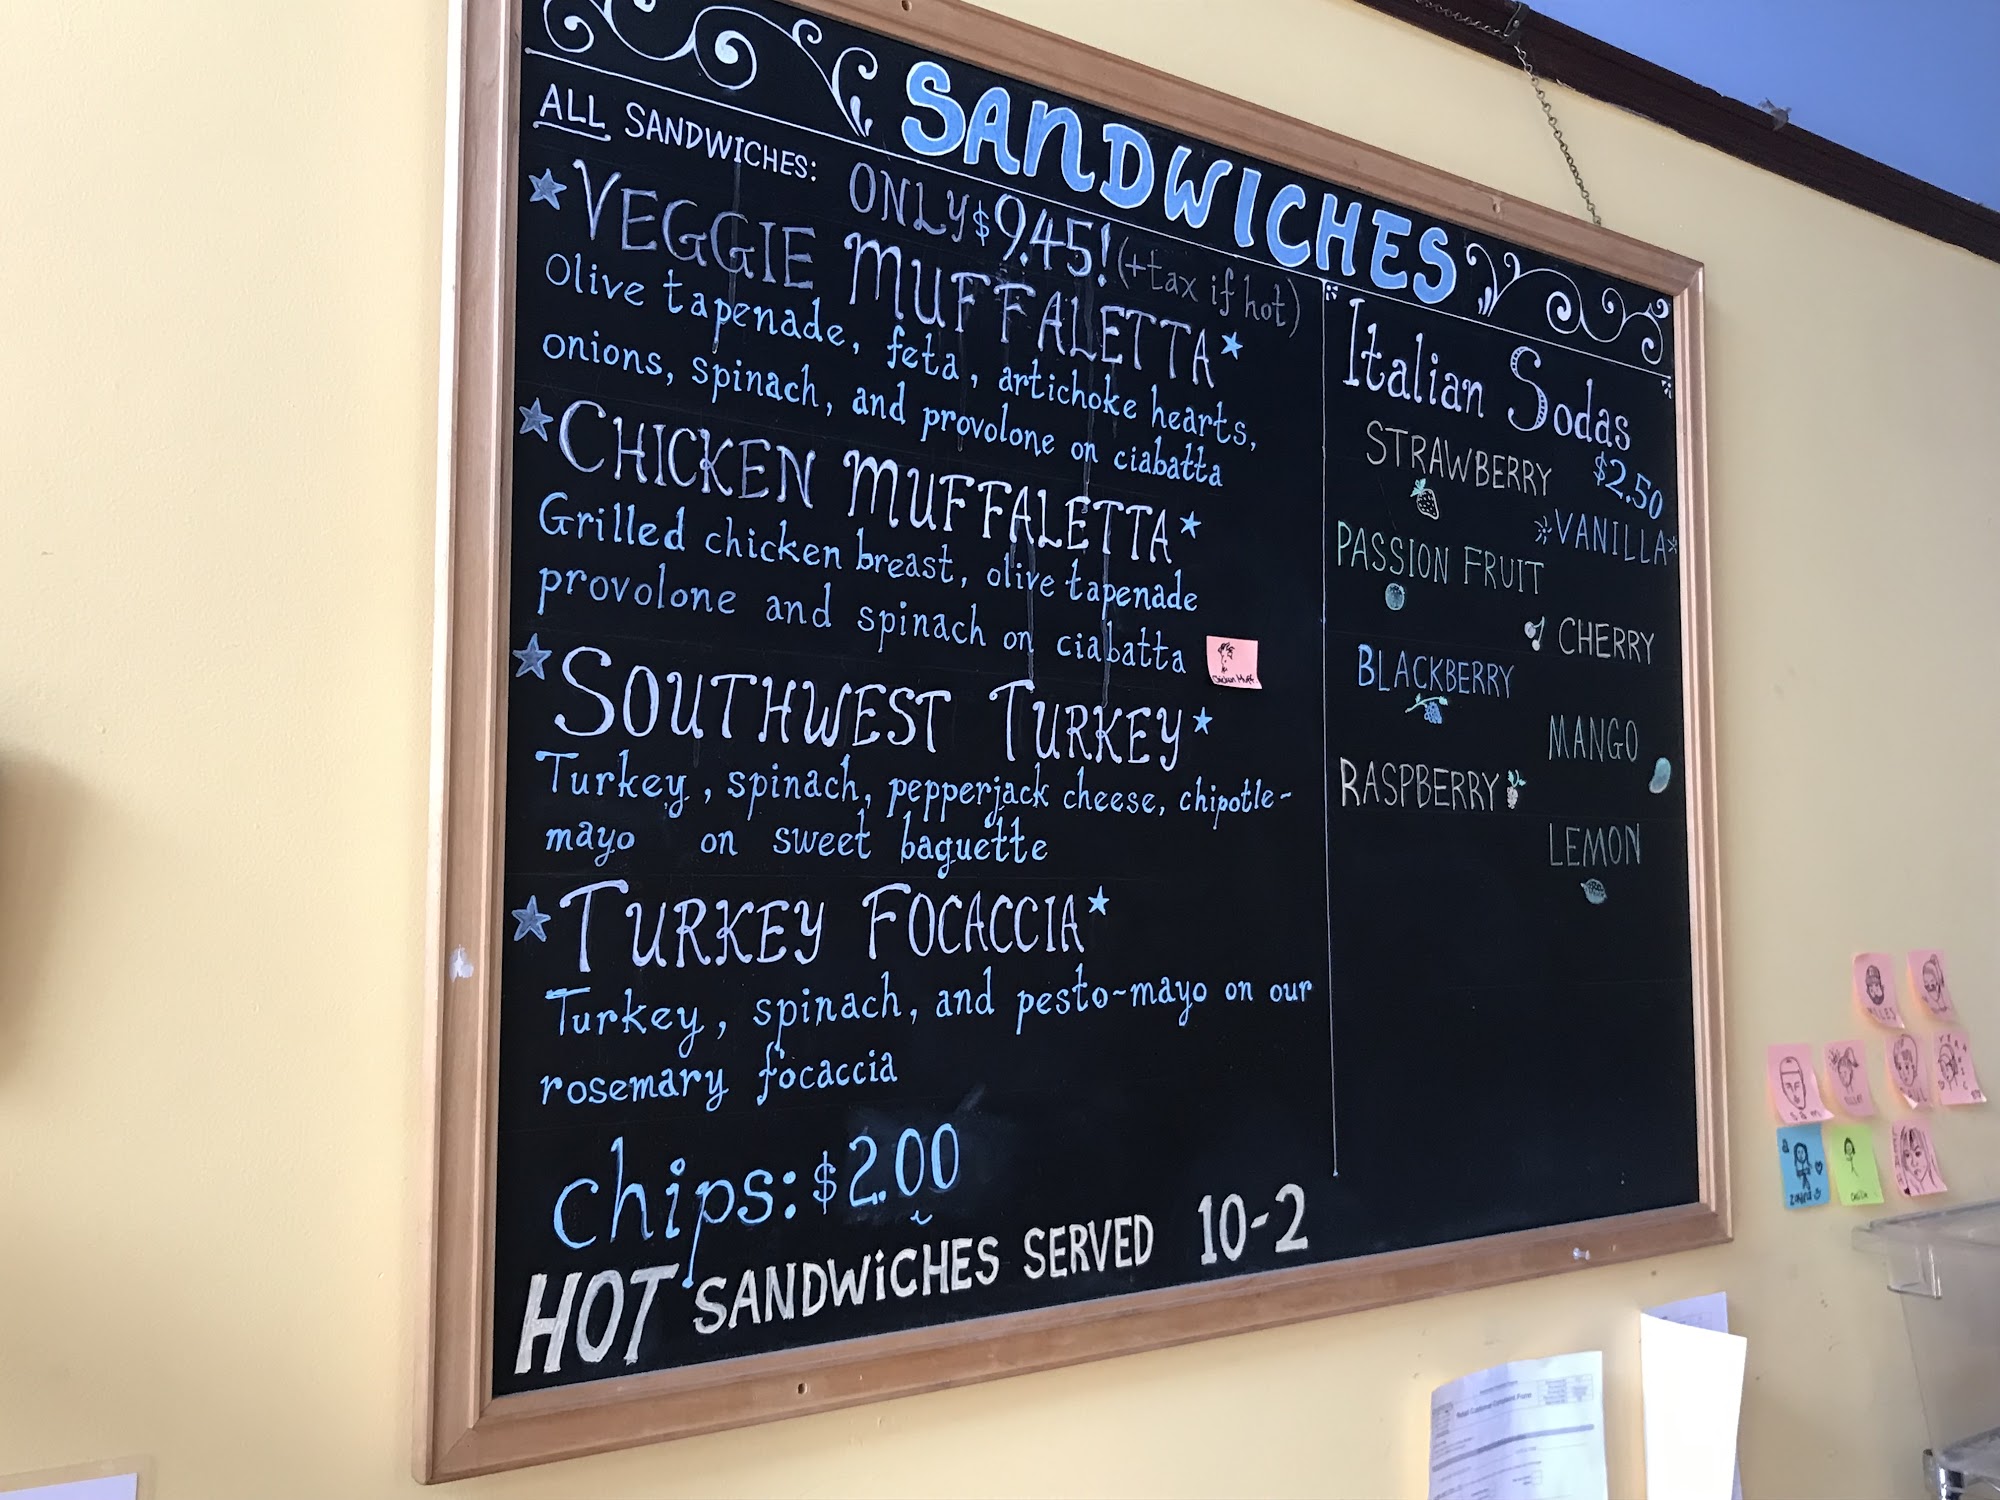 SANDWICHES
ALL SANDWICHES: ONLY $9.45! (+tax if hot)
VEGGIE MUFFALETTA
Olive tapenade, feta, artichoke hearts,
onions, spinach, and provolone on ciabatta
CHICKEN MUFFALETTA
Grilled chicken breast, olive tapenade
provolone and spinach on ciabatta
Chicken Muff
SOUTHWEST TURKEY
Turkey, spinach, pepperjack cheese, chipotle-
mayo on sweet baguette
TURKEY FOCACCIA
Turkey, spinach, and pesto-mayo on our
rosemary focaccia
chips: $2.00
HOT SANDWiCHES SERVED 10-2
Italian Sodas
$2.50
STRAWBERRY
VANILLA
PASSION FRUIT
CHERRY
BLACKBERRY
MANGO
RASPBERRY
LEMON
MILES
Sam